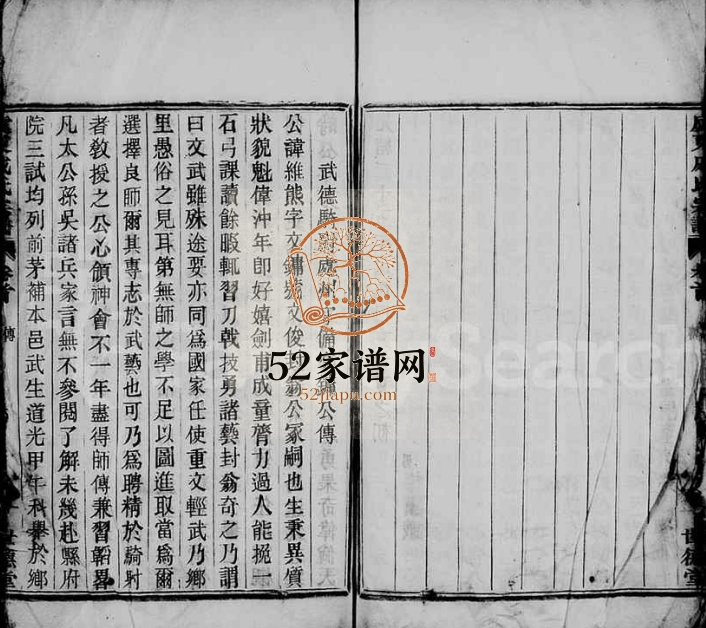 武德
處州
備
公傳
公諱維熊字文鏽
文俊
翁公冢嗣也生秉異質
狀貌魁偉沖年卽好嬉劍甫成童膂力過人能挽一
石弓課讀餘暇輒習刀戟技勇諸藝封翁奇之乃謂
曰文武雖殊途要亦同爲國家任使重文輕武乃鄉
里愚俗之見耳第無師之學不足以圖進取當爲爾
選擇良師爾其專志於武藝也可乃爲聘精於騎射
者敎授之公心領神會不一年盡得師傳兼習韜畧
凡太公孫吳諸兵家言無不參閱了解未幾赴縣府
院三試均列前茅補本邑武生道光甲午科舉於鄉
世德堂
52家谱网
52jiapu.com
Search